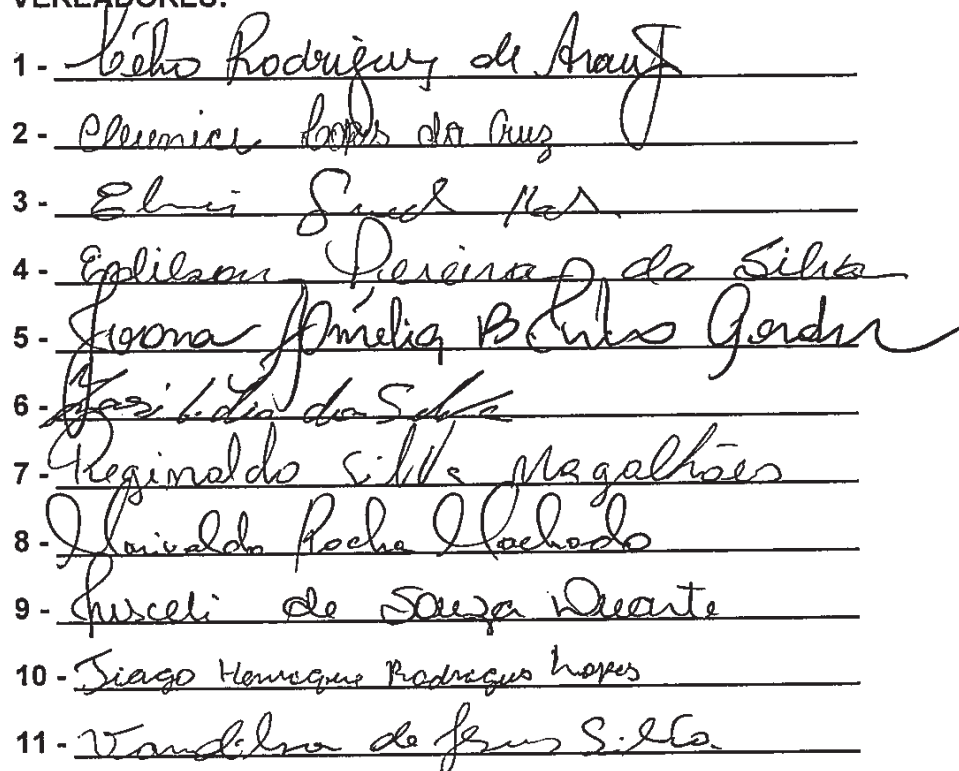 VEREADORES:
1 - Célio Rodrigues de Araujo
2 - Cleunice Lopes da Cruz
3 - Elmi
4 - Edilson Pereira da Silva
5 - Joana Amélia B
6 - da Silva
7 - Reginaldo Silva Magalhães
8 - Marivaldo Rocha Machado
9 - Jusceli de Souza Duarte
10 - Tiago Henrique Rodrigues Lopes
11 - Vandilson de Jesus Silva